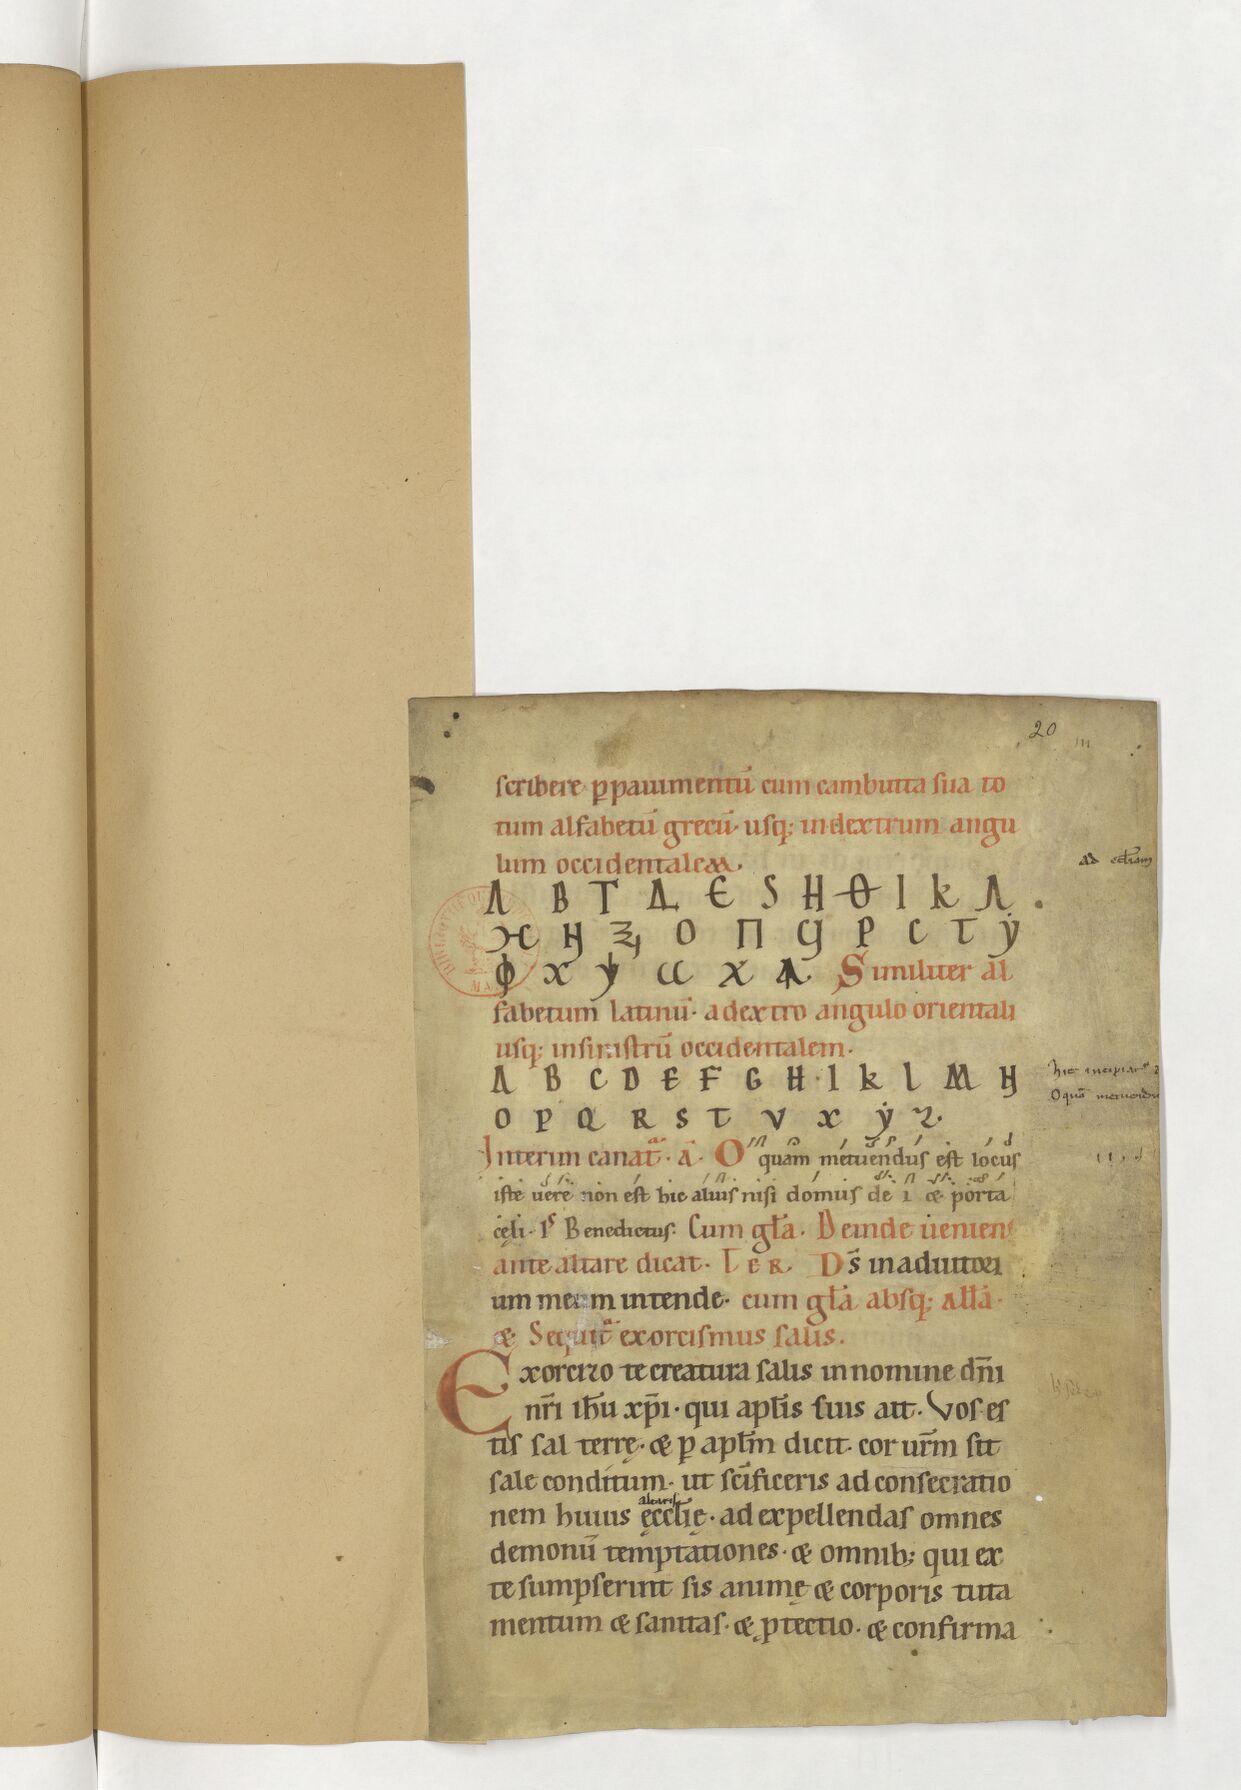 20
scribere p̱ pauimentū cum cambutta sua to
tum alfabetū grecū· usq; in dextrum angu
lum occidentalem·
ad ecclȩam
Λ B T Δ Є S H Θ I K Λ
O Π P C T ẏ
Φ X X Similiter al
fabetum latinū· a dextro angulo orientali
usq; in sinistrū occidentalem·
A B C D E F G H · I K L M N
hic incipiat²
O P Q R S T V X ẏ Z·
O quā metuend
Interim canat᷒· ā· O quam metuendus est locus
iste uere non est hic aliud nisi domus dei & porta
cęli· Ps̄ Benedictus· Cum gl̄a· Deinde ueniens
ante altare dicat· TER D̄s in adiutori
um meum intende· cum gl̄a absq; all̄a·
& Sequit᷒ exorcismus salis·
Exorcizo te creatura salis in nomine dn̄i
nr̄i ih̄u xp̄i· qui apl̄is suis ait· Vos es
tis sal terrę· & p̱ apl̄m dicit· cor ur̄m sit
sale conditum· ut sc̄ificeris ad consecratio
altaris
nem huius ęccl̄ię· ad expellendas omnes
demonū temptationes· & omnib; qui ex
te sumpserint sis animę & corporis tuta
mentum & sanitas· & ꝓtectio· & confirma